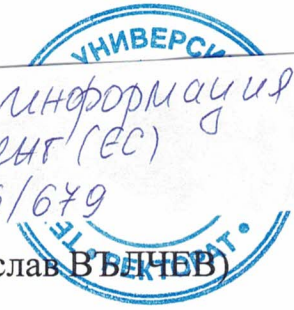 УНИВЕРСИ
информация
ент (ЕС)
6/679
слав ВЪЛЧЕВ)
РЕКТОРАТ